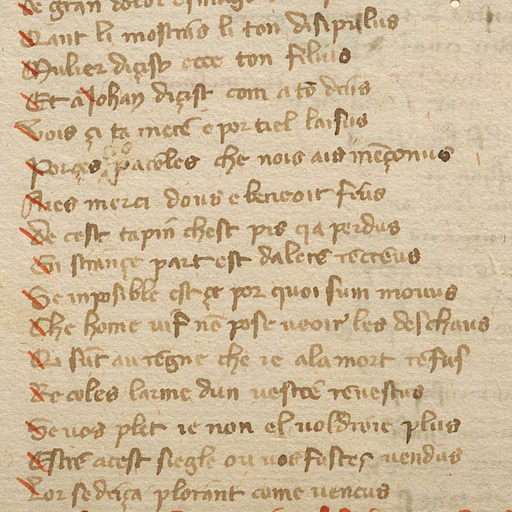 de gran dolor
Tant li mostras li ton disiplus
Mulier diçist ecce ton filius
Et a Johan diçist com a tō drus
Vois çi ta merē e por tiel laisus
Porçes paroles che nois ais mēçonus
Ares merci dous e beneoit frus
De cest tapin chest pis q a perdus
En strançe part est dalers rēceus
Se inposible est çe por quoi sum mouus
Che home uif nē pose ueoir les deschaus
Qi sūt au regne che ie ala mort refus
Recoles larme dun uestrē reuestus
Se uos plet ie non el uoldroie plus
Estre acest siegle ou uos fustes uendus
Lor se deiça plorant come uencus